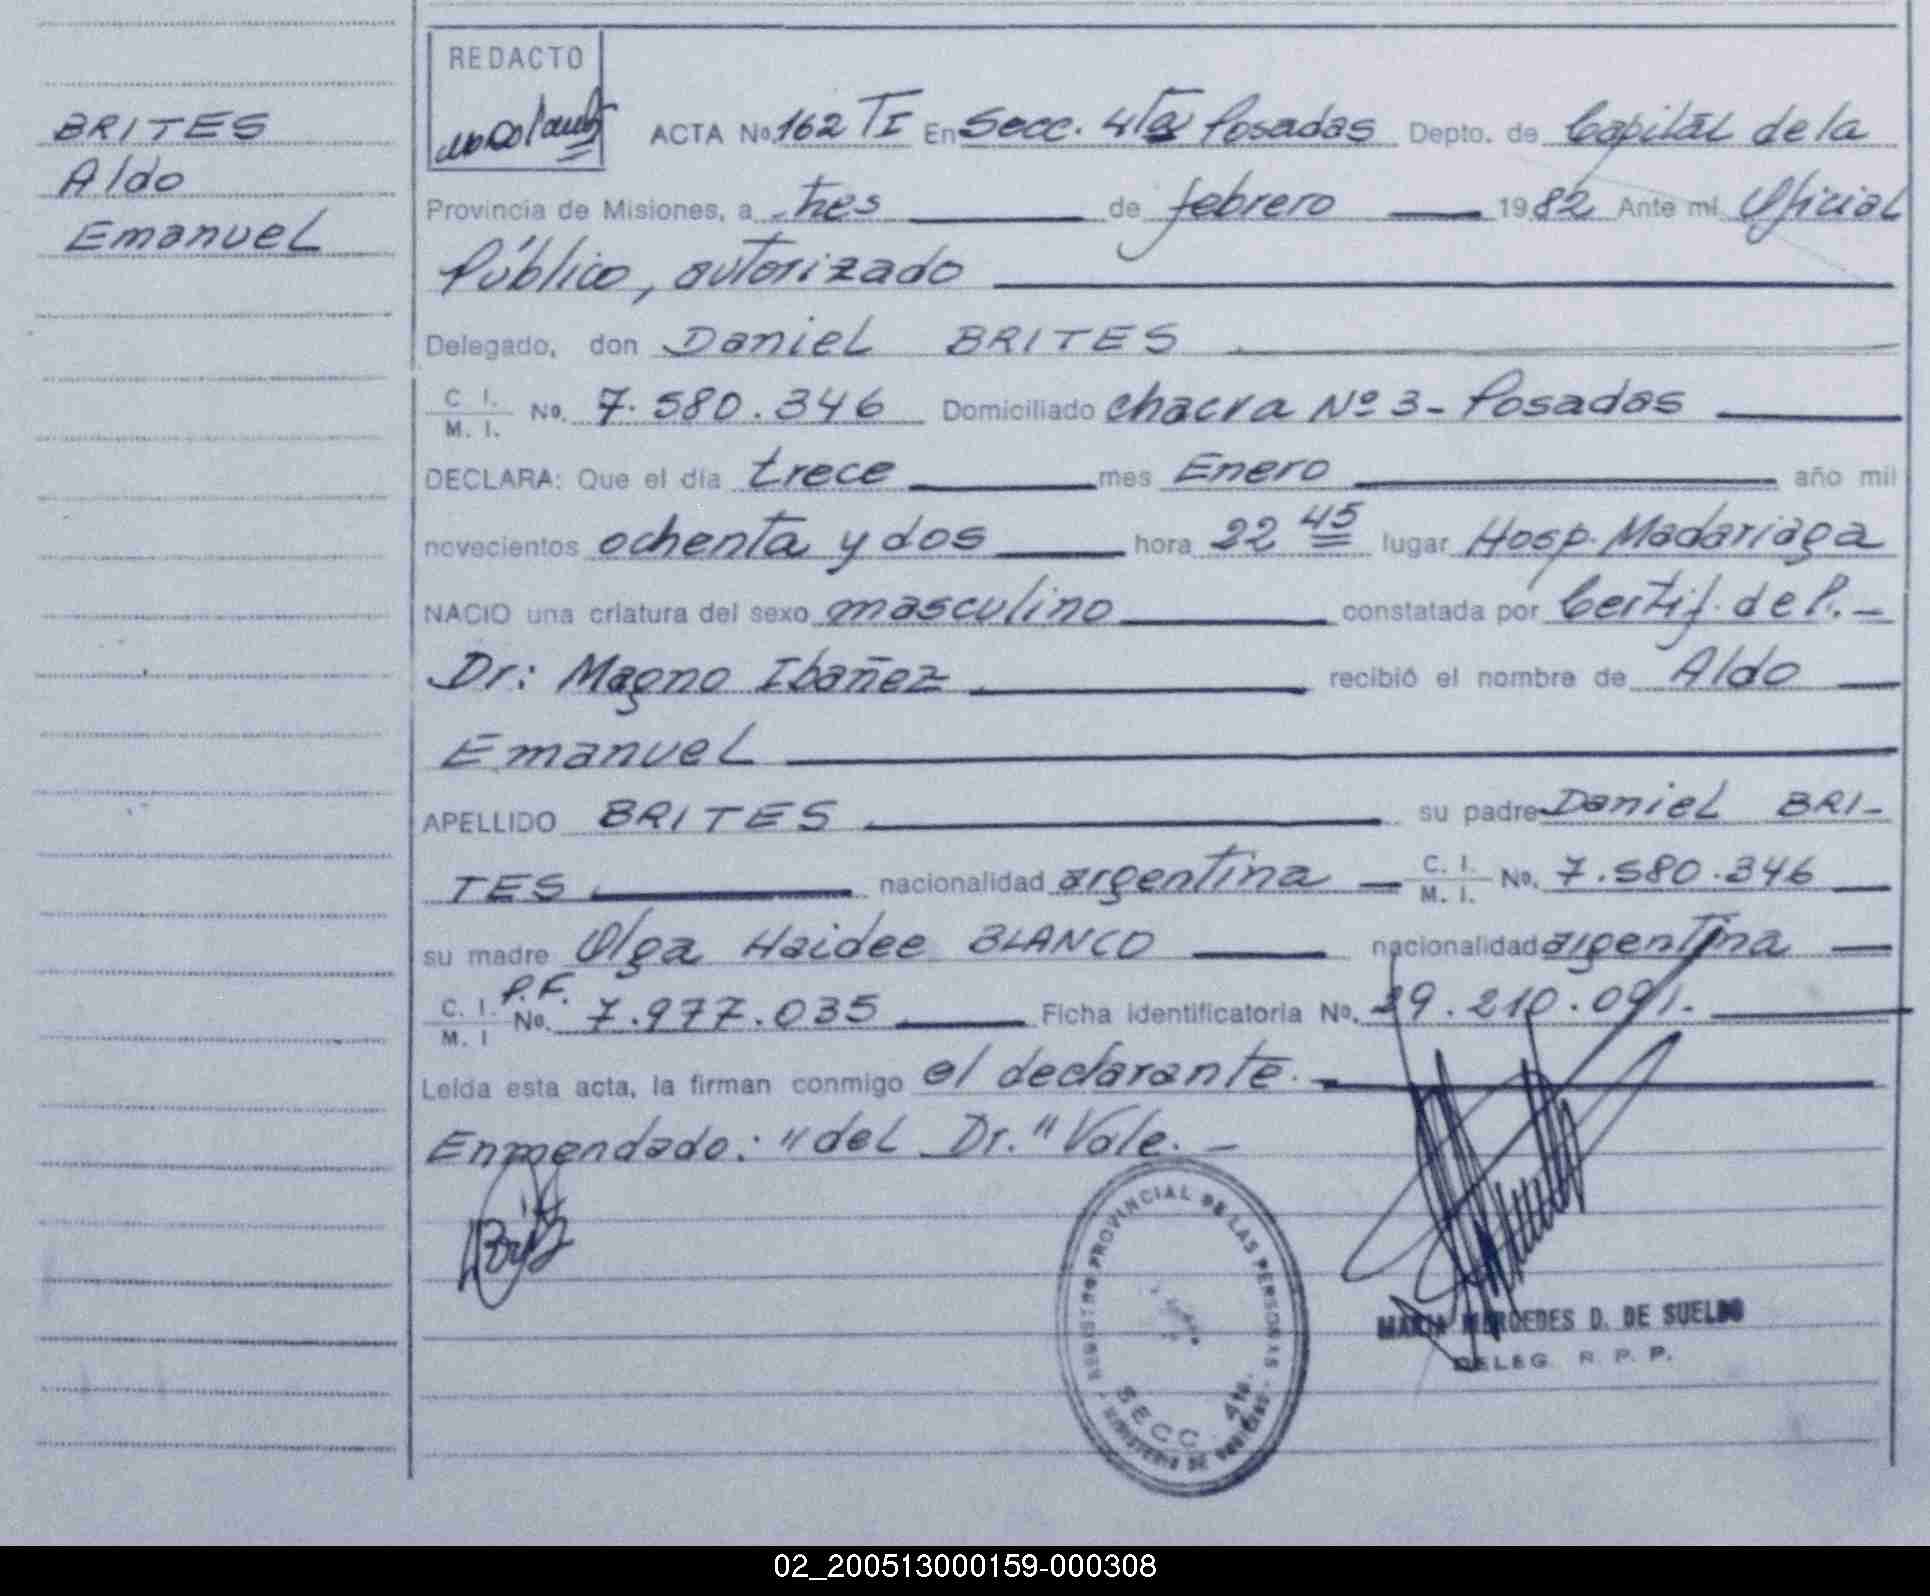 BRITES
Aldo
Emanuel
REDACTO
ACTA No. 162 TI En Secc. 4ta Posadas Depto. de Capital de la
Provincia de Misiones, a tres de febrero 1982 Ante mi Oficial
Público, autorizado
Delegado, don Daniel BRITES
C. I. M. I. No. 7.580.346 Domiciliado chacra Nº 3- Posadas
DECLARA: Que el día trece mes Enero año mil
novecientos ochenta y dos hora 22 45 lugar Hosp. Madariaga
NACIO una criatura del sexo masculino constatada por Certif. de P.-
Dr: Magno Ibañez recibió el nombre de Aldo
Emanuel
APELLIDO BRITES su padre Daniel BRI-
TES nacionalidad argentina C. I. M. I. No. 7.580.346
su madre Olga Haidee BLANCO nacionalidad argentina
C. I. M. I P.F. No. 7.977.035 Ficha identificatoria No. 29.210.091.-
Leída esta acta, la firman conmigo el declarante.
Enmendado: "del Dr." Vale.-
REGISTRO PROVINCIAL DE LAS PERSONAS
SECC. 4ta.
MINISTERIO DE GOBIERNO
MARIA MERCEDES D. DE SUELDO
DELEG. R. P. P.
02_200513000159-000308